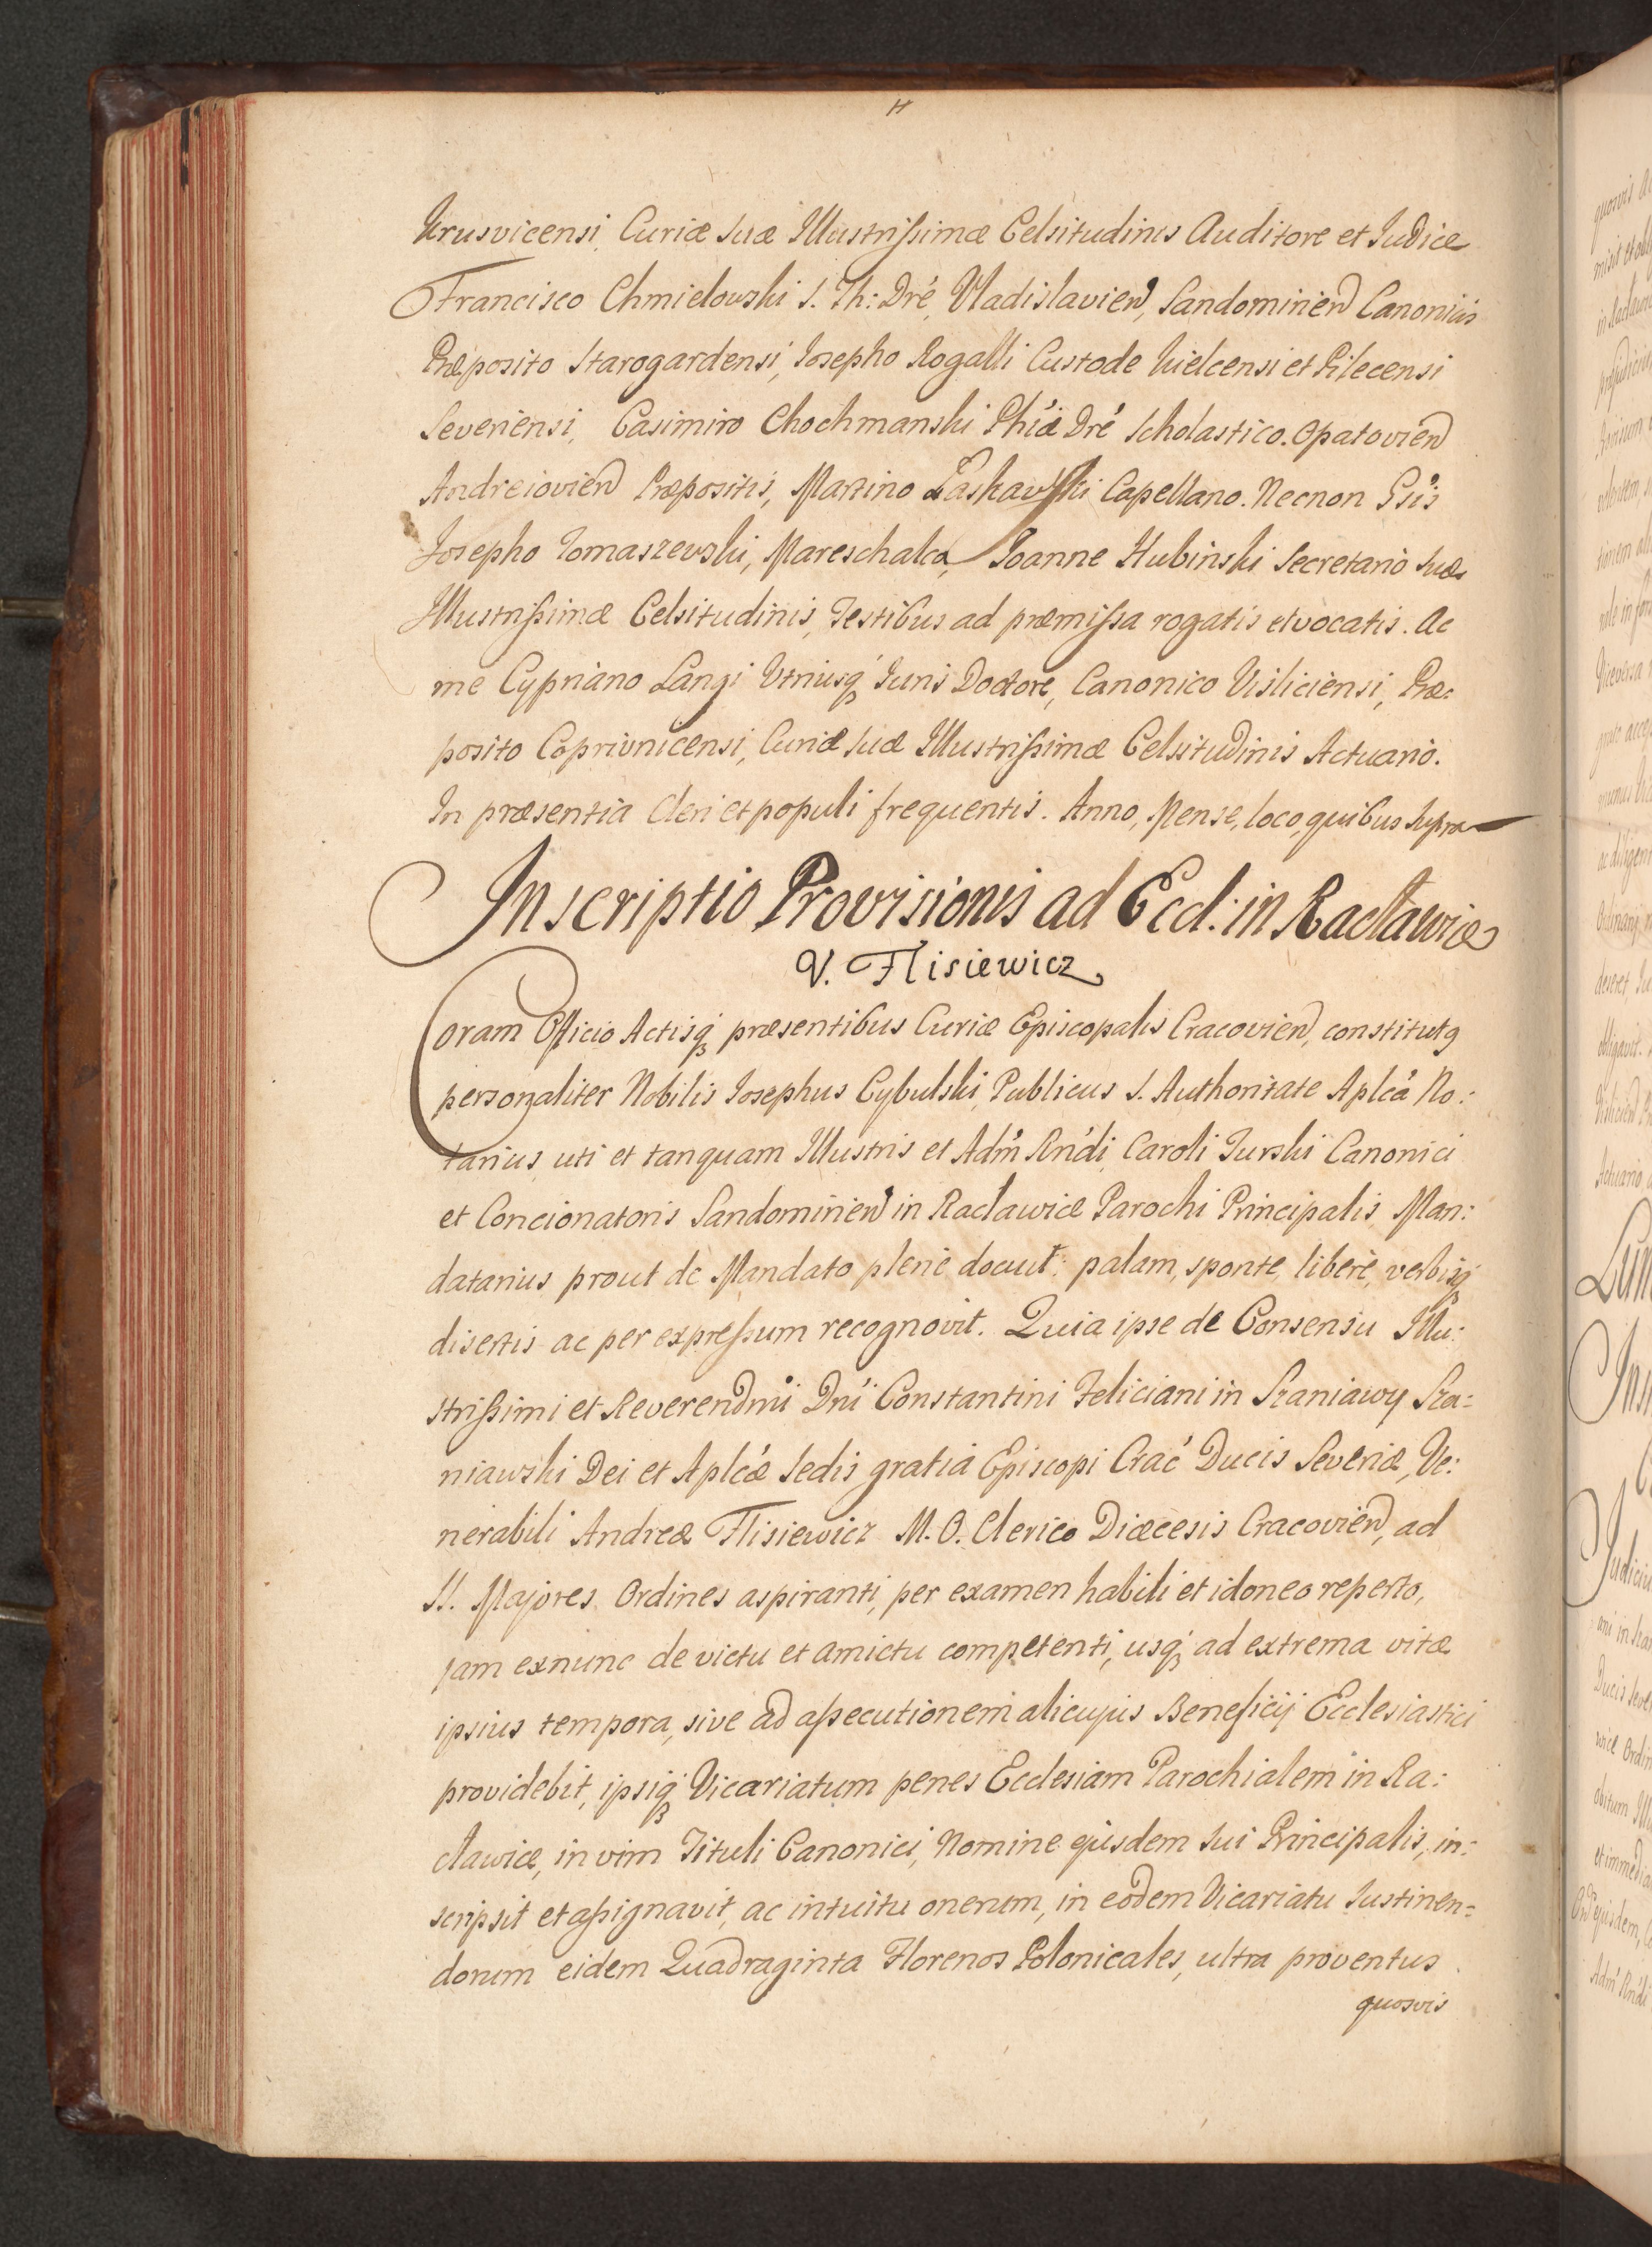 Krusvicensi, Curiæ suæ Illustrißimæ Celsitudinis Auditore et Judice
Francisco Chmielowski S. Th: Dre, Vladislavien, Sandomirien Canonicis
Præposito Starogardensi, Josepho Rogalli Custode Kielcensi et Pilecensi
Severiensi, Casimiro Chochmanski Phiæ Dre Scholastico. Opatovien
Andreiovien Præpositis, Martino Łaskawski Capellano. Necnon Gsis
Josepho Tomaszewski, Mareschalco, Joanne Hubinski Secretario suæ
Illustrißimæ Celsitudinis, Testibus ad præmißa rogatis et vocatis. Ac
me Cypriano Langi Utriusq Juris Doctore, Canonico Visliciensi, Præ:
posito Coprivnicensi, Curiæ suæ Illustrißimæ Celsitudinis Actuario.
In præsentia Cleri et populi frequentis. Anno, Mense, loco, quibus supra
Inscriptio Provisionis ad Eccl: in Racławice
V. Flisiewicz
Coram Officio Actisq præsentibus Curiæ Episcopalis Cracovien, constitutq
personaliter Nobilis Josephus Cybulski, Publicus S. Authoritate Aplcâ No:
tarius, uti et tanquam Illustris et Adm Rndi Caroli Jurski Canonici
et Concionatoris Sandomirien in Racławice Parochi Principalis, Man:
datarius prout de Mandato plene docuit: palam, sponte, liberè, verbisq
disertis ac per expreßum recognovit. Quia ipse de Consensu Illu:
strißimi et Reverendmi Dni Constantini Feliciani in Szaniawy Sza=
niawski Dei et Aplcæ Sedis gratia Episcopi Crac Ducis Severiæ, Ve:
nerabili Andreæ Flisiewicz M. O. Clerico Diæcesis Cracovien, ad
SS. Majores Ordines aspiranti, per examen habili et idoneo reperto,
jam exnunc de victu et amictu competenti, usq ad extrema vitæ
ipsius tempora, sive ad aßecutionem alicujus Beneficij Ecclesiastici
providebit, ipsiq Vicariatum penes Ecclesiam Parochialem in Ra:
cławice, in vim Tituli Canonici, Nomine ejusdem sui Principalis, in:
scripsit et aßignavit, ac intuitu onerum, in eodem Vicariatu sustinen=
dorum eidem Quadraginta Florenos Polonicales, ultra proventus
quosvis